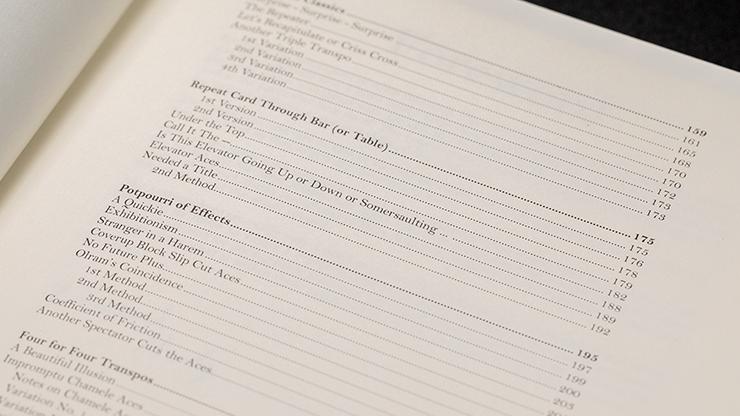 Classics 159
Surprise - Surprise 161
The Repeater 165
Let's Recapitulate or Criss Cross 168
Another Triple Transpo 170
1st Variation 170
2nd Variation 172
3rd Variation 173
4th Variation 173
Repeat Card Through Bar (or Table) 175
1st Version 175
2nd Version 176
Under the Top 178
Call It The -- 179
Is This Elevator Going Up or Down or Somersaulting ... 182
Elevator Aces 188
Needed a Title 189
2nd Method 192
Potpourri of Effects 195
A Quickie 197
Exhibitionism 199
Stranger in a Harem 200
Coverup Block Slip Cut Aces 203
No Future Plus
Olram's Coincidence
1st Method
2nd Method
3rd Method
Coefficient of Friction
Another Spectator Cuts the Aces
Four for Four Transpos
A Beautiful Illusion
Impromptu Chamele Aces
Notes on Chamele Aces
Variation No. 1